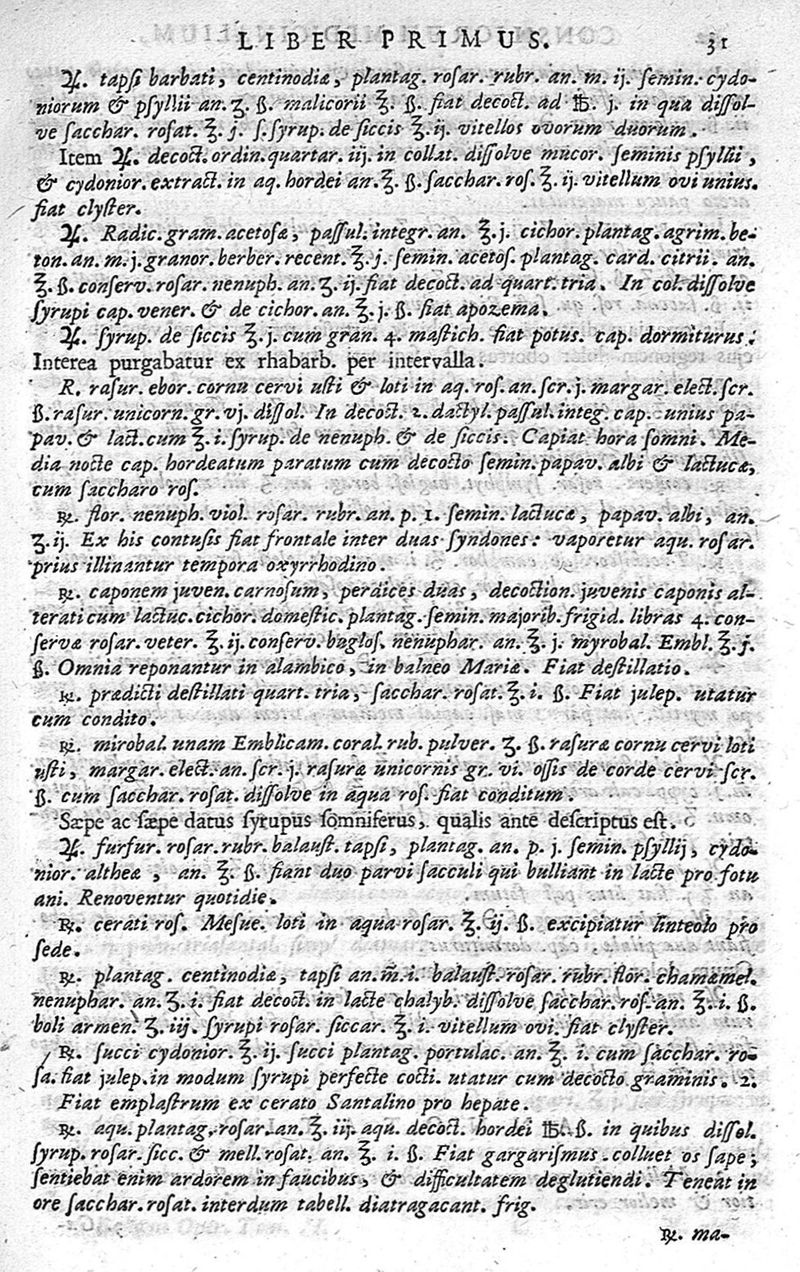 LIBER PRIMUS. 31
℞. tapsi barbati, centinodiæ, plantag. rosar. rubr. an. m. ij. semin. cydo-
niorum & psyllii an. ʒ. ß. malicorii ℥. ß. fiat decoct. ad ℔. j. in qua dissol-
ve sacchar. rosat. ℥. j. s. syrup. de siccis ℥. ij. vitellos ovorum duorum.
Item ℞. decoct. ordin. quartar. iij. in collat. dissolve mucor. seminis psyllii,
& cydonior. extract. in aq. hordei an. ℥. ß. sacchar. ros. ℥. ij. vitellum ovi unius.
fiat clyster.
℞. Radic. gram. acetosæ, passul. integr. an. ℥. j. cichor. plantag. agrim. be-
ton. an. m. j. granor. berber. recent. ℥. j. semin. acetos. plantag. card. citrii. an.
℥. ß. conserv. rosar. nenuph. an. ʒ. ij. fiat decoct. ad quart. tria. In col. dissolve
syrupi cap. vener. & de cichor. an. ℥. j. ß. fiat apozema.
℞. syrup. de siccis ℥. j. cum gran. 4. mastich. fiat potus. cap. dormiturus.
Interea purgabatur ex rhabarb. per intervalla.
R. rasur. ebor. cornu cervi usti & loti in aq. ros. an. scr. j. margar. elect. scr.
ß. rasur. unicorn. gr. vj. dissol. In decoct. 2. dactyl. passul. integ. cap. unius pa-
pav. & lact. cum ℥. i. syrup. de nenuph. & de siccis. Capiat hora somni. Me-
dia nocte cap. hordeatum paratum cum decocto semin. papav. albi & lactucæ,
cum saccharo ros.
℞. flor. nenuph. viol. rosar. rubr. an. p. 1. semin. lactucæ, papav. albi, an.
ʒ. ij. Ex his contusis fiat frontale inter duas syndones: vaporetur aqu. rosar.
prius illinantur tempora oxyrrhodino.
℞. caponem juven. carnosum, perdices duas, decoction. juvenis caponis al-
terati cum lactuc. cichor. domestic. plantag. semin. majorib. frigid. libras 4. con-
servæ rosar. veter. ℥. ij. conserv. buglos. nenuphar. an. ℥. j. myrobal. Embl. ℥. j.
ß. Omnia reponantur in alambico, in balneo Mariæ. Fiat destillatio.
℞. prædicti destillati quart. tria, sacchar. rosat. ℥. i. ß. Fiat julep. utatur
cum condito.
℞. mirobal. unam Emblicam. coral. rub. pulver. ʒ. ß. rasuræ cornu cervi loti
usti, margar. elect. an. scr. j. rasuræ unicornis gr. vi. ossis de corde cervi scr.
ß. cum sacchar. rosat. dissolve in aqua ros. fiat conditum.
Sæpe ac sæpe datus syrupus somniferus, qualis ante descriptus est.
℞. furfur. rosar. rubr. balaust. tapsi, plantag. an. p. j. semin. psyllij, cydo-
nior. altheæ, an. ℥. ß. fiant duo parvi sacculi qui bulliant in lacte pro fotu
ani. Renoventur quotidie.
℞. cerati ros. Mesue. loti in aqua rosar. ℥. ij. ß. excipiatur linteolo pro
sede.
℞. plantag. centinodiæ, tapsi an. m̄. i. balaust. rosar. rubr. flor. chamæmel.
nenuphar. an. ʒ. i. fiat decoct. in lacte chalyb. dissolve sacchar. ros. an. ℥. i. ß.
boli armen. ʒ. iij. syrupi rosar. siccar. ℥. i. vitellum ovi. fiat clyster.
℞. succi cydonior. ℥. ij. succi plantag. portulac. an. ℥. i. cum sacchar. ro-
sa. fiat julep. in modum syrupi perfecte cocti. utatur cum decocto graminis. 2.
Fiat emplastrum ex cerato Santalino pro hepate.
℞. aqu. plantag. rosar. an. ℥. iij. aqu. decoct. hordei ℔. ß. in quibus dissol.
syrup. rosar. sicc. & mell. rosat. an. ℥. i. ß. Fiat gargarismus. colluet os sæpe;
sentiebat enim ardorem in faucibus, & difficultatem deglutiendi. Teneat in
ore sacchar. rosat. interdum tabell. diatragacant. frig.
℞. ma-